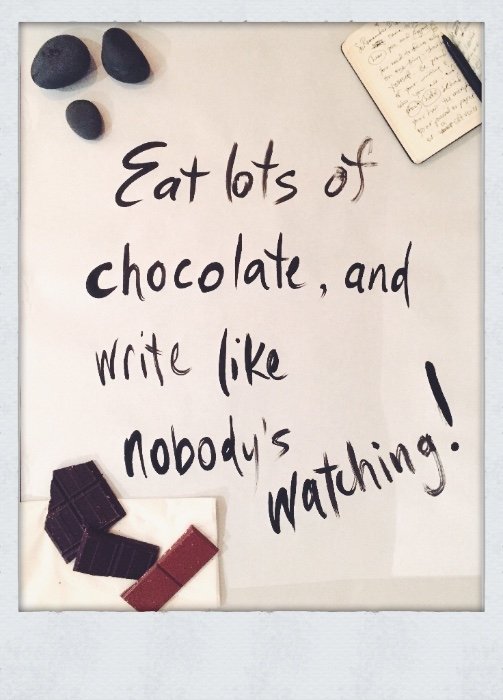 Eat lots of
chocolate, and
write like
nobody's
watching!